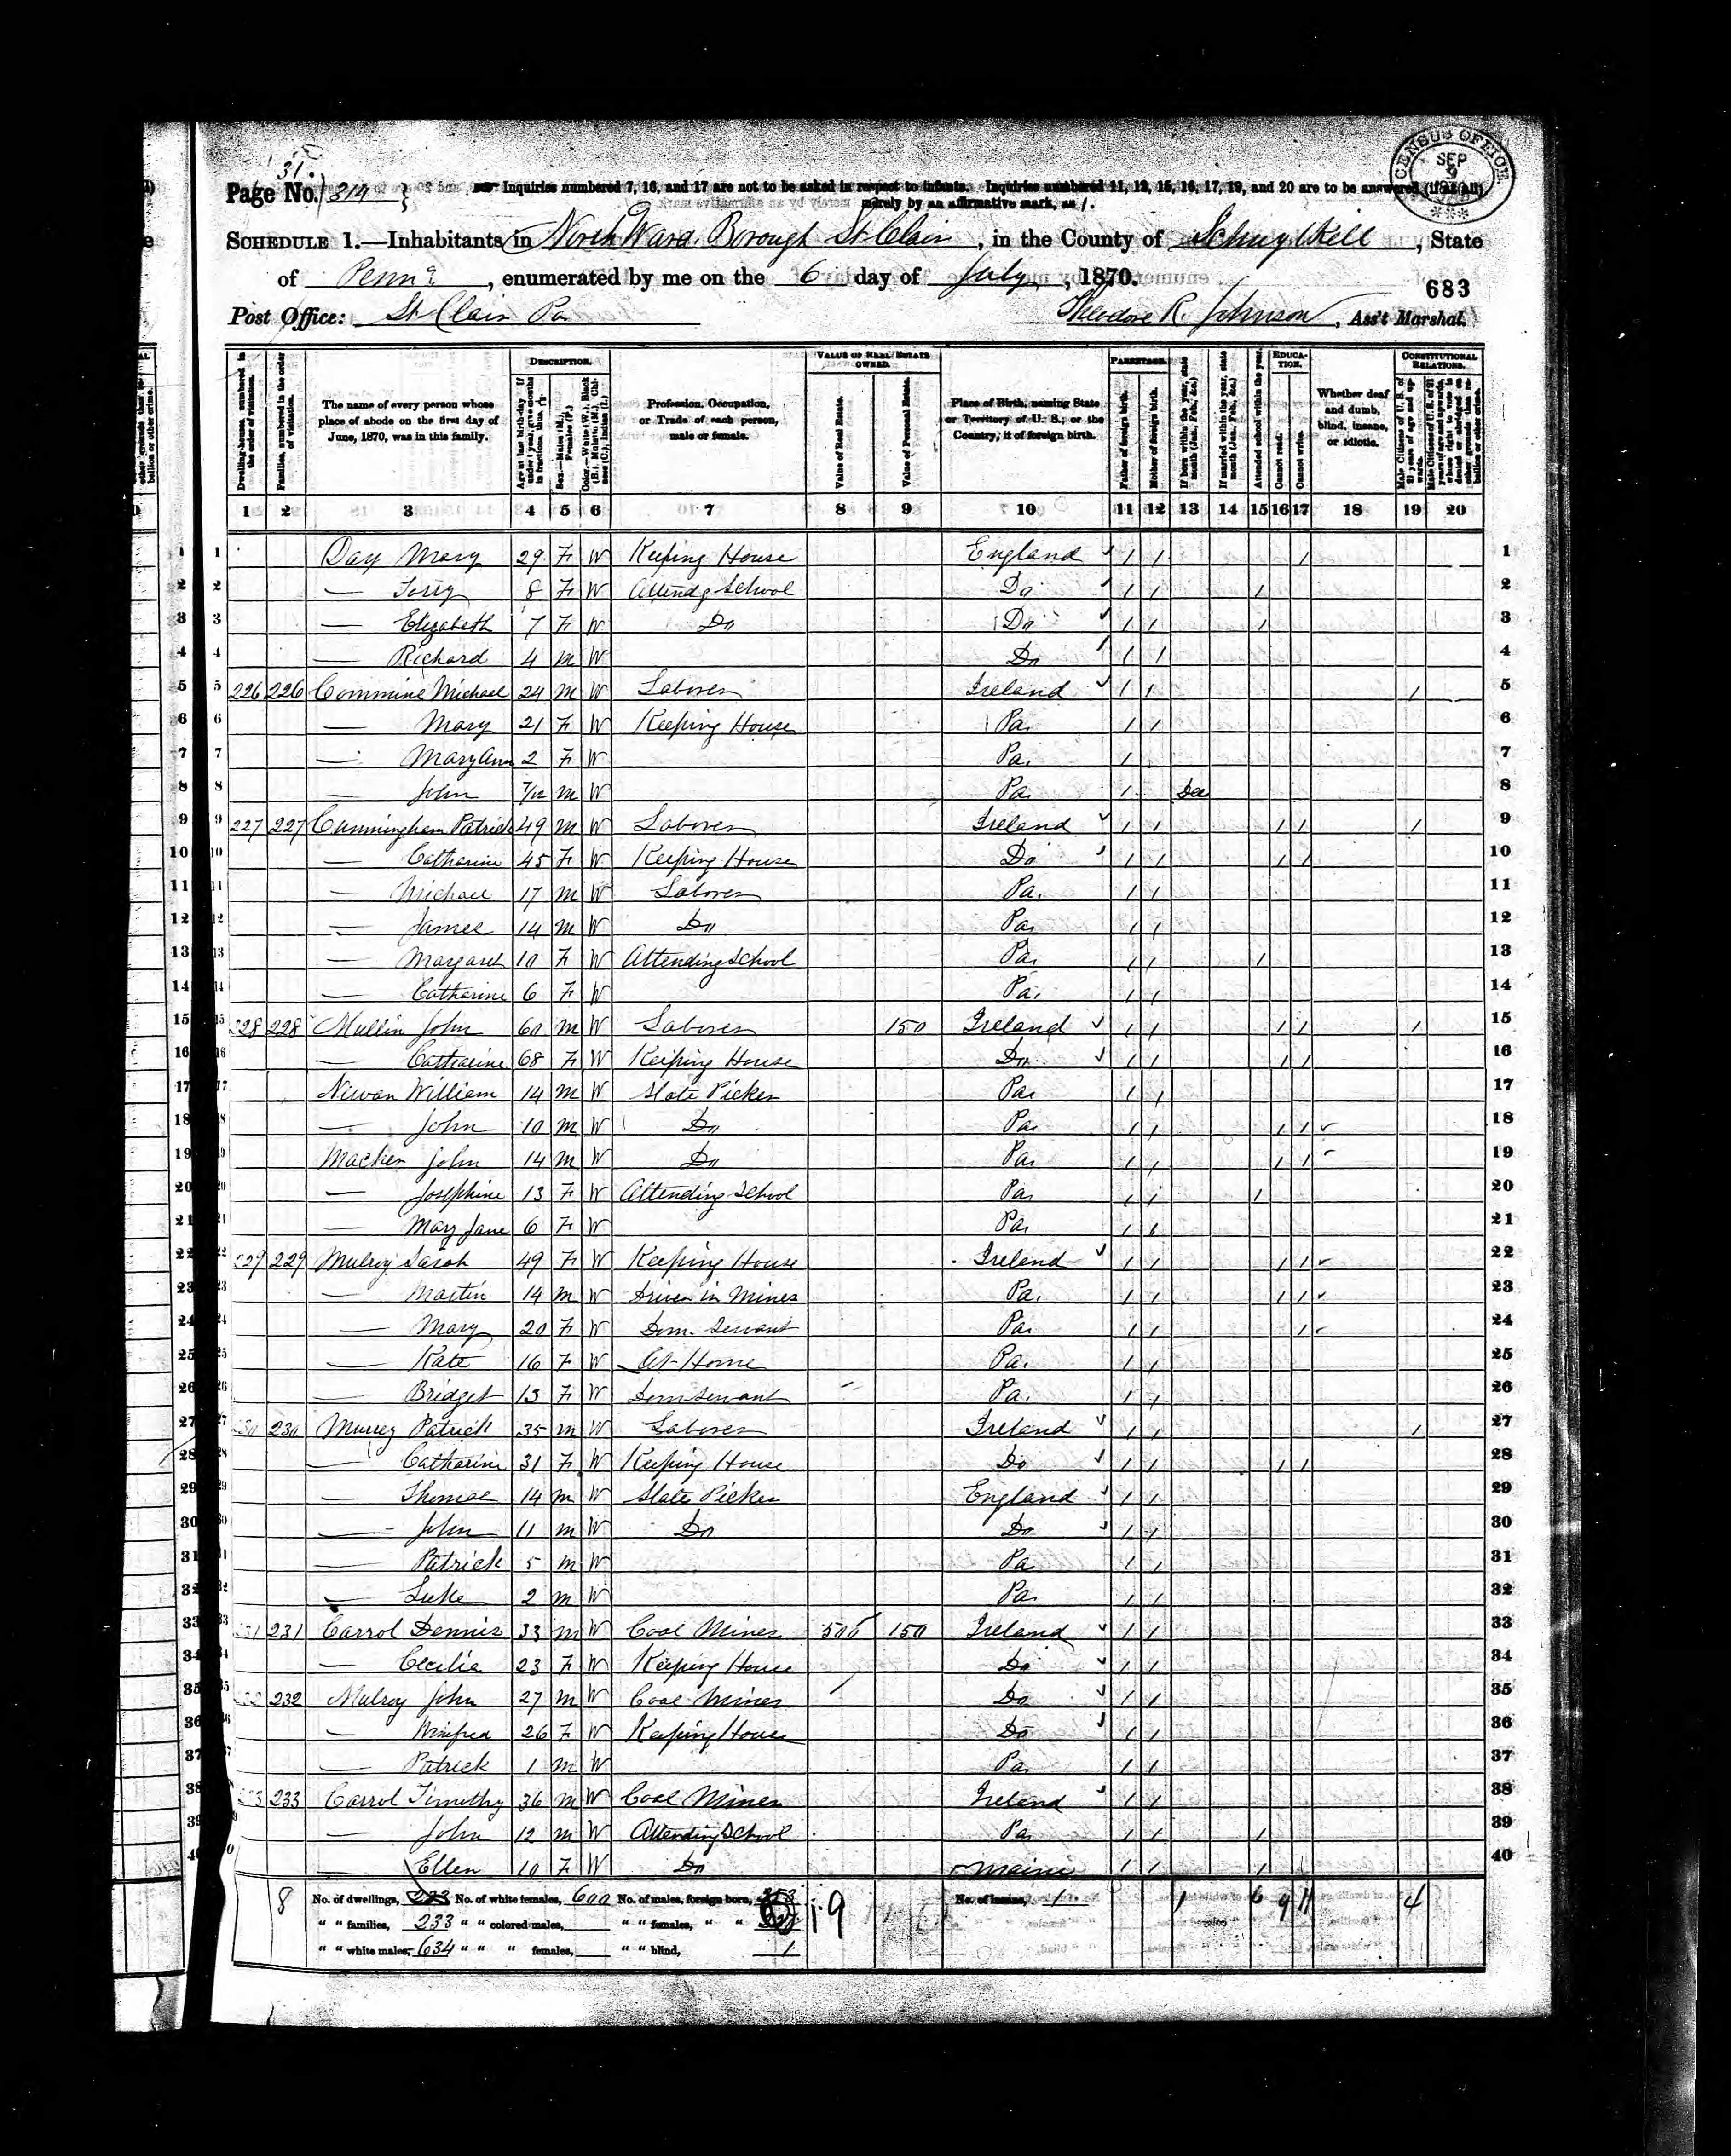 31.
Page No. 314 } Inquiries numbered 7, 16, and 17 are not to be asked in respect to infants. Inquiries numbered 11, 12, 15, 16, 17, 19, and 20 are to be answered (if at all)
merely by an affirmative mark, as /.
CENSUS OFFICE SEP 9
SCHEDULE 1.—Inhabitants in North Ward Borough St Clair, in the County of Schuylkill, State
of Penna, enumerated by me on the 6 day of July, 1870.
683
Post Office: St Clair Pa Theodore R. Johnson, Ass't Marshal.
Dwelling-houses, numbered in the order of visitation.
Families, numbered in the order of visitation.
The name of every person whose place of abode on the first day of June, 1870, was in this family.
DESCRIPTION.
Age at last birth-day. If under 1 year, give months in fractions, thus,
Sex.—Males (M.), Females (F.)
Color.—White (W.), Black (B.), Mulatto (M.), Chinese (C.), Indian (I.)
Profession, Occupation, or Trade of each person, male or female.
VALUE OF REAL ESTATE OWNED.
Value of Real Estate.
Value of Personal Estate.
Place of Birth, naming State or Territory of U. S.; or the Country, if of foreign birth.
PARENTAGE.
Father of foreign birth.
Mother of foreign birth.
If born within the year, state month (Jan., Feb., &c.)
If married within the year, state month (Jan., Feb., &c.)
Attended school within the year.
EDUCATION.
Cannot read.
Cannot write.
Whether deaf and dumb, blind, insane, or idiotic.
CONSTITUTIONAL RELATIONS.
Male Citizens of U. S. of 21 years of age and upwards.
Male Citizens of U. S. of 21 years of age and upwards, whose right to vote is denied or abridged on other grounds than rebellion or other crime.
1 2 3 4 5 6 7 8 9 10 11 12 13 14 15 16 17 18 19 20
1 Day Mary 29 F W Keeping House England / / / 1
2 — 8 F W Attendg School Do / / / 2
3 — Elizabeth 7 F W Do Do / / / 3
4 — Richard 4 M W Do / / 4
5 226 226 Commine Michael 24 M W Laborer Ireland / / / 5
6 — Mary 21 F W Keeping House Pa. / / 6
7 — Mary Ann 2 F W Pa. / 7
8 — John 7/12 M W Pa. / Dec 8
9 227 227 Cunningham Patrick 49 M W Laborer Ireland / / / / / 9
10 — Catharine 45 F W Keeping House Do / / / / 10
11 — Michael 17 M W Laborer Pa. / / 11
12 — James 14 M W Do Pa. / / 12
13 — Margaret 10 F W Attending School Pa. / / / 13
14 — Catharine 6 F W Pa. / / 14
15 228 228 Mullin John 60 M W Laborer 150 Ireland / / / / / 15
16 — Catharine 68 F W Keeping House Do / / / / 16
17 William 14 M W Slate Picker Pa. / / 17
18 — John 10 M W Do Pa. / / / / 18
19 Macken John 14 M W Do Pa. / / / / 19
20 — Josephine 13 F W Attending School Pa. / / / 20
21 — Mary Jane 6 F W Pa. / / 21
22 229 229 Mulroy Sarah 49 F W Keeping House Ireland / / / / 22
23 — Martin 14 M W Driver in Mines Pa. / / / / 23
24 — Mary 20 F W Dom. Servant Pa. / / / 24
25 — Kate 16 F W At Home Pa. / / 25
26 — Bridget 13 F W Dom Servant Pa. / / 26
27 230 230 Murrey Patrick 35 M W Laborer Ireland / / / 27
28 — Catharine 31 F W Keeping House Do / / / / 28
29 — Thomas 14 M W Slate Picker England / / 29
30 — John 11 M W Do Do / / 30
31 — Patrick 5 M W Pa / / 31
32 — Luke 2 M W Pa. / / 32
33 231 231 Carrol Dennis 33 M W Coal Miner 500 150 Ireland / / 33
34 — Cecilia 23 F W Keeping House Do / / 34
35 232 232 Mulroy John 27 M W Coal Miner Do / / 35
36 — Winifred 26 F W Keeping House Do / / 36
37 — Patrick 1 M W Pa. / / 37
38 233 233 Carrol Timothy 36 M W Coal Miner Ireland / / 38
39 — John 12 M W Attending School Pa. / / / 39
40 — Ellen 10 F W Do Maine / / / 40
8 No. of dwellings, 233 No. of white females, 600 No. of males, foreign born, 19 No. of insane, 1 1 6 9 11 4
" " families, 233 " " colored males, " " females, " "
" " white males, 634 " " " females, " " blind, 1